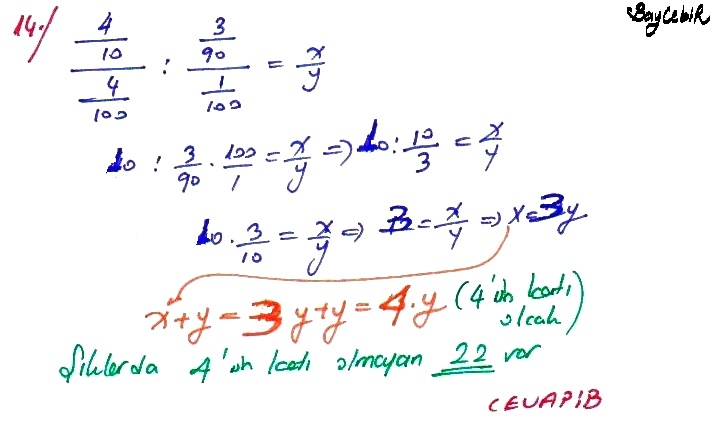 BayCebiR
14-/ (4/10)/(4/100) : (3/90)/(1/100) = x/y
10 : 3/90 . 100/1 = x/y => 10 : 10/3 = x/y
10 . 3/10 = x/y => 3 = x/y => x=3y
x+y = 3y+y = 4.y (4'ün katı olcak)
Şıklarda 4'ün katı olmayan 22 var
CEVAP B